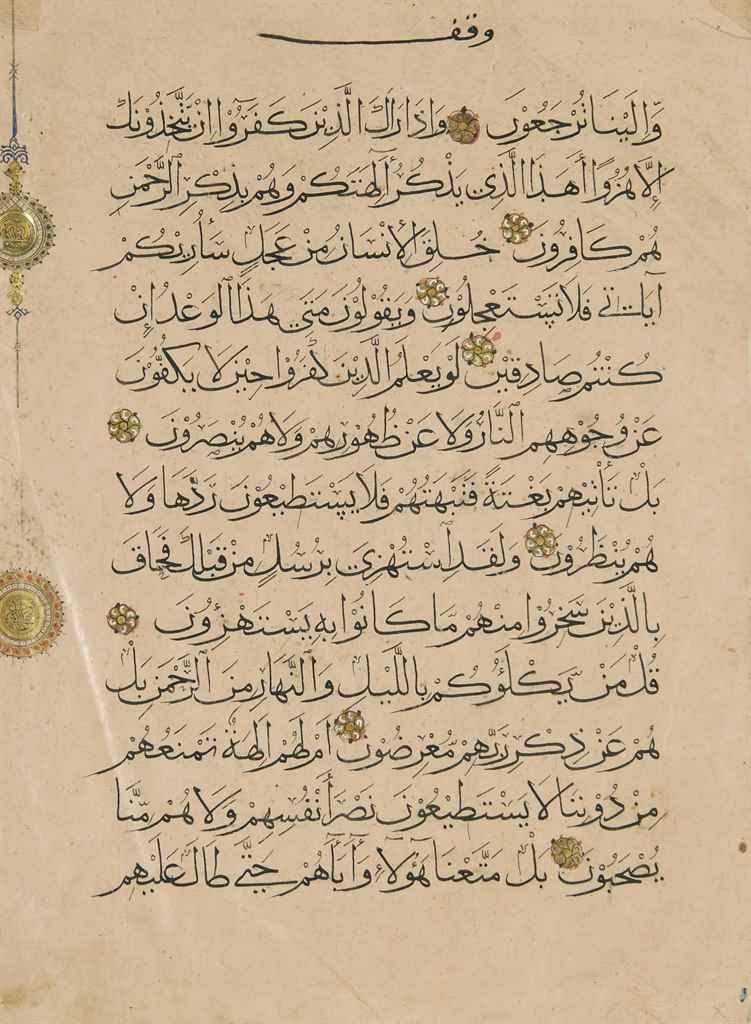 وقف
وَّاِلَيْنا تُرْجَعُوْنَ وَاِذَا رَاٰكَ الَّذِيْنَ كَفَرُوْٓا اِنْ يَّتَّخِذُوْنَكَ
اِلَّا هُزُوًا اَهٰذَا الَّذِيْ يَذْكُرُ اٰلِهَتَكُمْ وَهُمْ بِذِكْرِ الرَّحْمٰنِ
هُمْ كَافِرُوْنَ خُلِقَ الْاِنْسَانُ مِنْ عَجَلٍ سَاُرِيْكُمْ
اٰيَاتِيْ فَلَا تَسْتَعْجِلُوْنِ وَيَقُوْلُوْنَ مَتٰى هٰذَا الْوَعْدُ اِنْ
كُنْتُمْ صَادِقِيْنَ لَوْ يَعْلَمُ الَّذِيْنَ كَفَرُوْا حِيْنَ لَا يَكُفُّوْنَ
عَنْ وُجُوْهِهِمُ النَّارَ وَلَا عَنْ ظُهُوْرِهِمْ وَلَا هُمْ يُنْصَرُوْنَ
بَلْ تَأْتِيْهِمْ بَغْتَةً فَتَبْهَتُهُمْ فَلَا يَسْتَطِيْعُوْنَ رَدَّهَا وَلَا
هُمْ يُنْظَرُوْنَ وَلَقَدِ اسْتُهْزِئَ بِرُسُلٍ مِنْ قَبْلِكَ فَحَاقَ
بِالَّذِيْنَ سَخِرُوْا مِنْهُمْ مَّا كَانُوْا بِهٖ يَسْتَهْزِؤُنَ
قُلْ مَنْ يَّكْلَؤُكُمْ بِاللَّيْلِ وَالنَّهَارِ مِنَ الرَّحْمٰنِ بَلْ
هُمْ عَنْ ذِكْرِ رَبِّهِمْ مُّعْرِضُوْنَ اَمْ لَهُمْ اٰلِهَةٌ تَمْنَعُهُمْ
مِنْ دُوْنِنَا لَا يَسْتَطِيْعُوْنَ نَصْرَ اَنْفُسِهِمْ وَلَا هُمْ مِّنَّا
يُصْحَبُوْنَ بَلْ مَتَّعْنَا هٰٓؤُلَآءِ وَاٰبَآءَهُمْ حَتّٰى طَالَ عَلَيْهِم